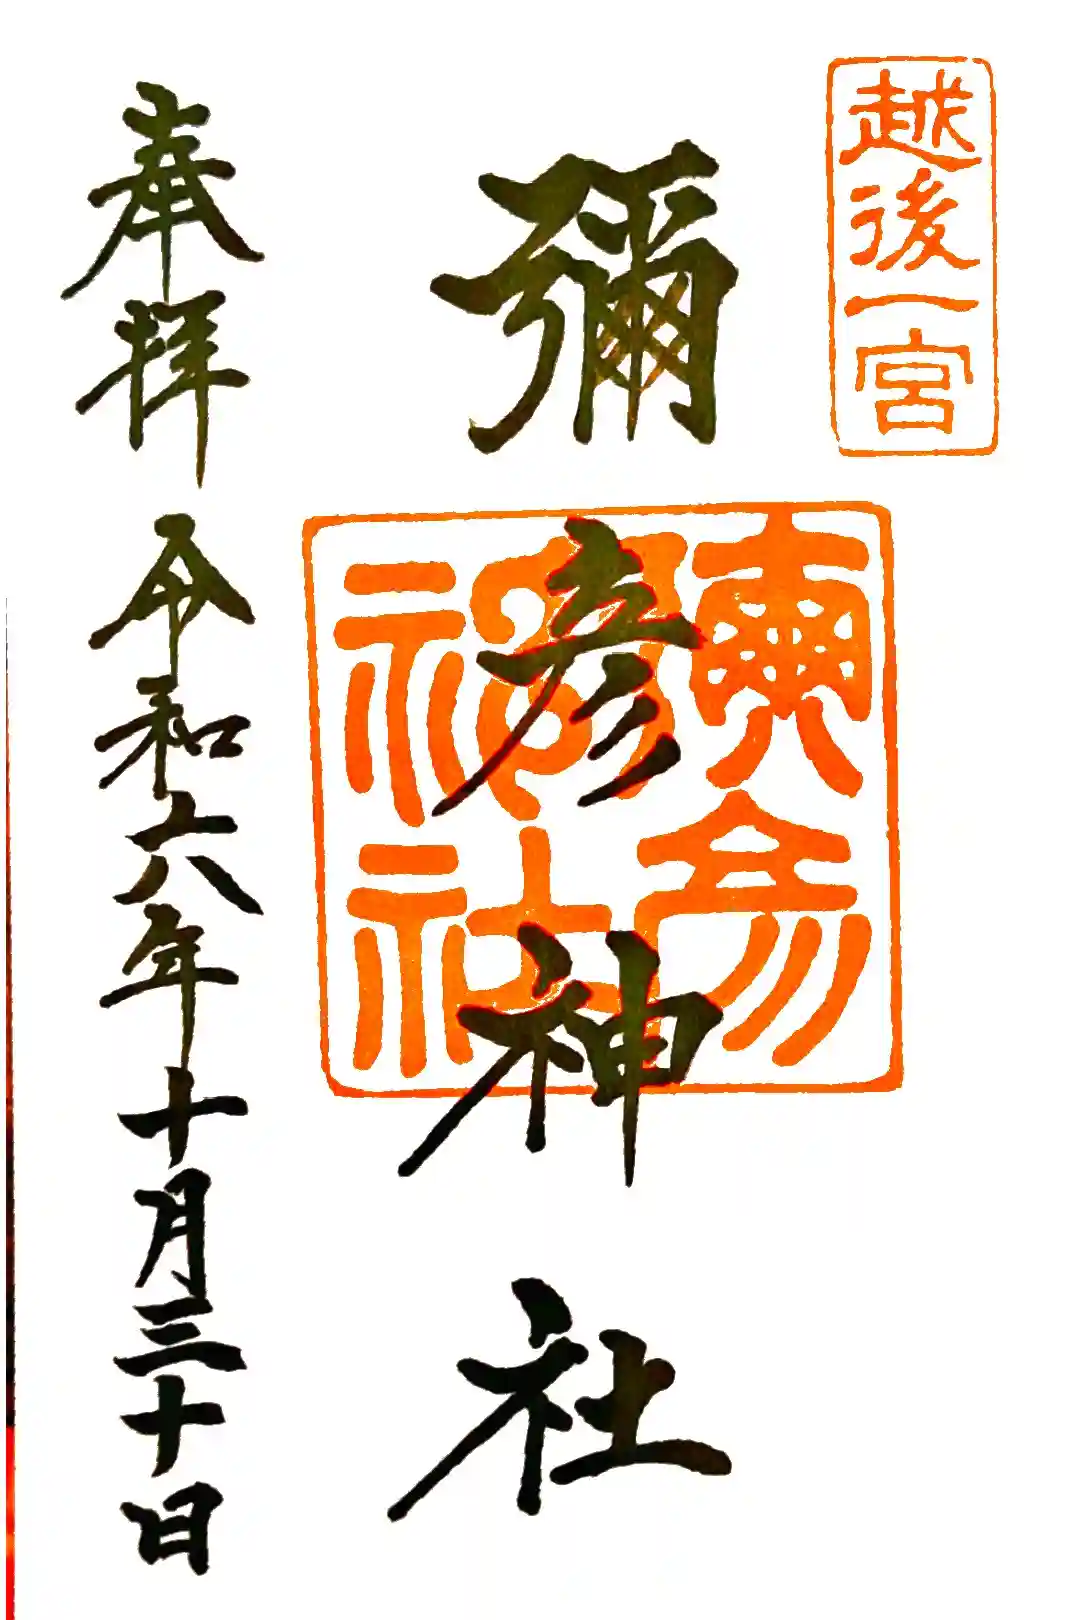 越後一宮
彌彦神社
奉拝
令和六年十月三十日